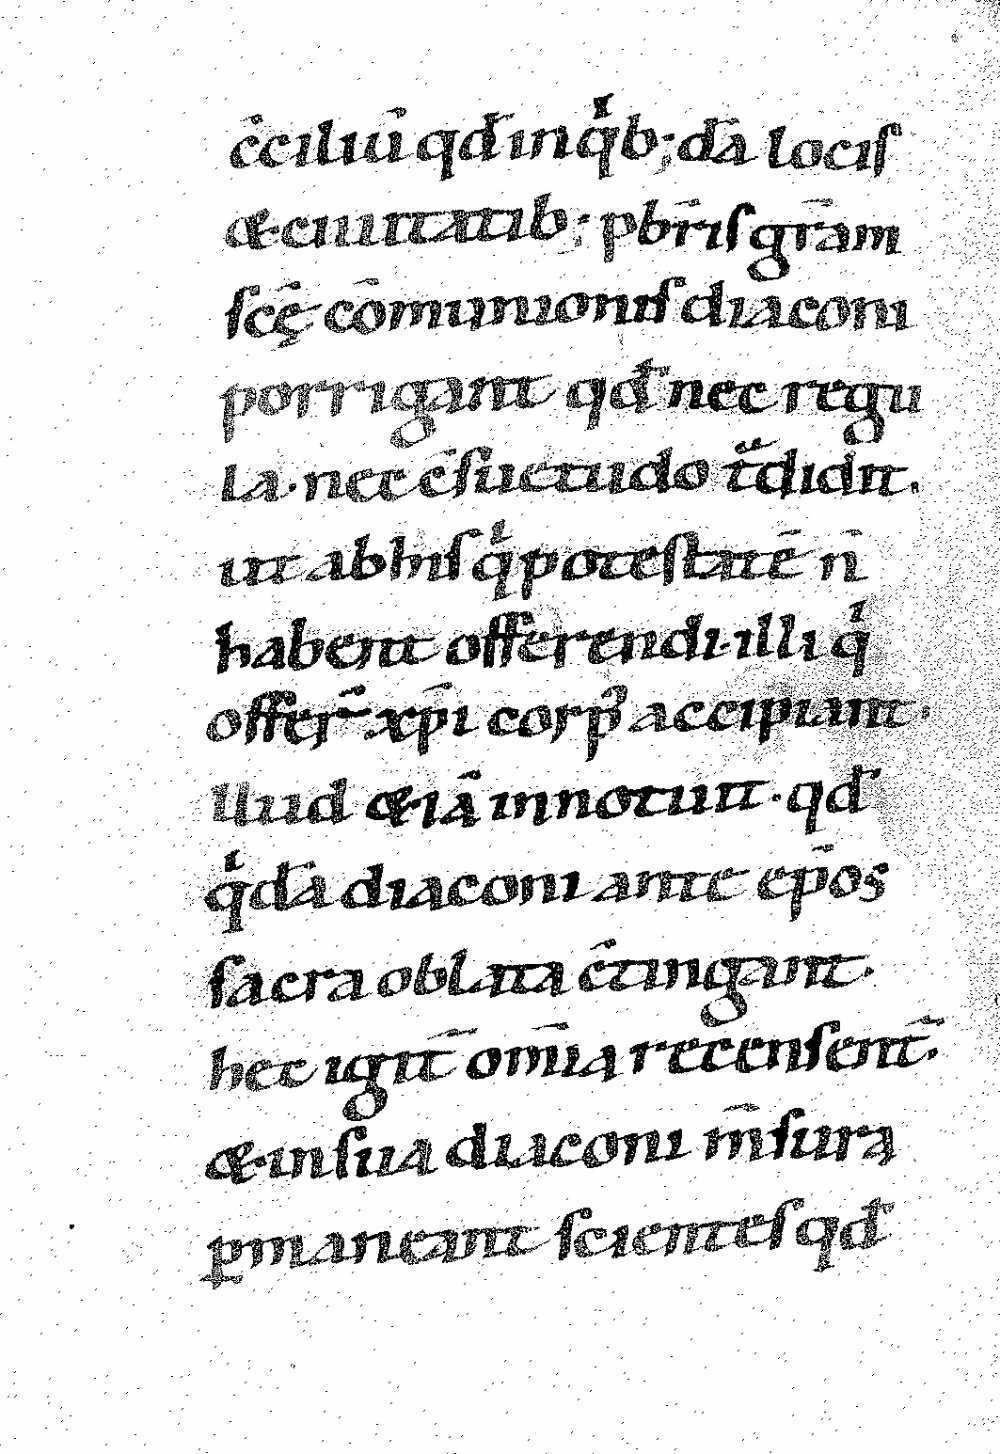 c̄ciliū qđ in qͥb; dā locis
&ciuitatib; pb̄ris gr̄am
sc̄ę cōmunionis diaconi
porrigant qđ nec regu
la· nec c̄suetudo tͣdidit.
ut ab his qͥ potestatē n̄
habent offerendi· illi qͥ
offer̄ xp̄i corp᾽ accipiant·
llud & iā innotuit· qđ
qͥdā diaconi ante ep̄os
sacra oblata c̄tingant·
hec igit̄ om̄ia recensent̄.
& in sua diaconi m̄sura
ꝑmaneant scientes qđ